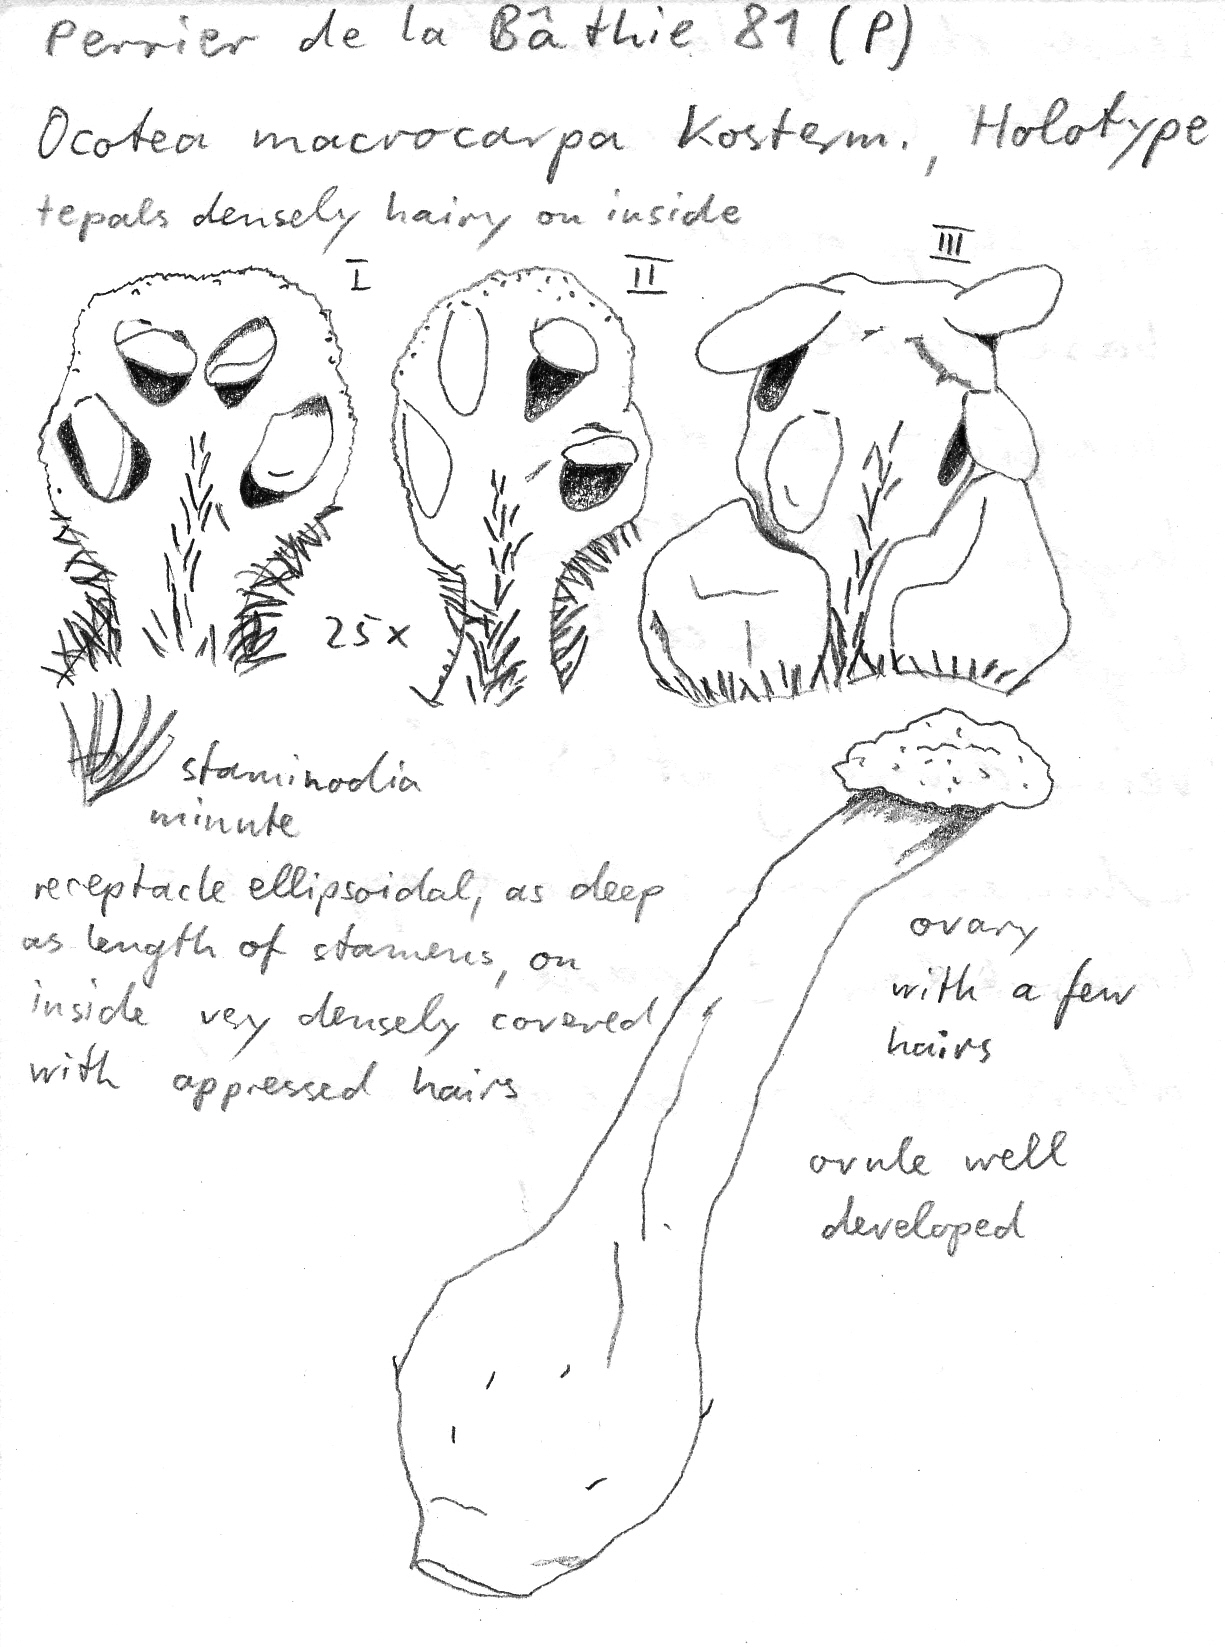 Perrier de la Bâthie 81 (P)
Ocotea macrocarpa Kosterm., Holotype
tepals densely hairy on inside
I
II
III
25 x
staminodia
minute
receptacle ellipsoidal, as deep
as length of stamens, on
inside very densely covered
with appressed hairs
ovary
with a few
hairs
ovule well
developed